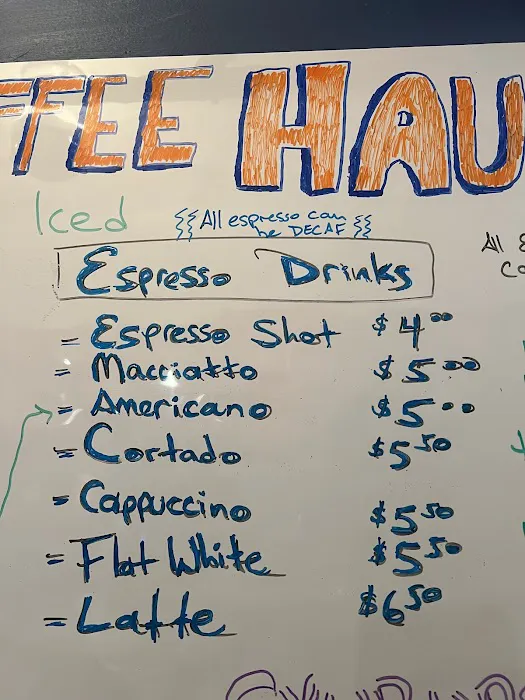 FFEE HAU
Iced
All espresso can
be DECAF
All
Espresso Drinks
= Espresso Shot $4.00
= Macciatto $5.00
= Americano $5.00
= Cortado $5.50
= Cappuccino $5.50
= Flat White $5.50
= Latte $6.50